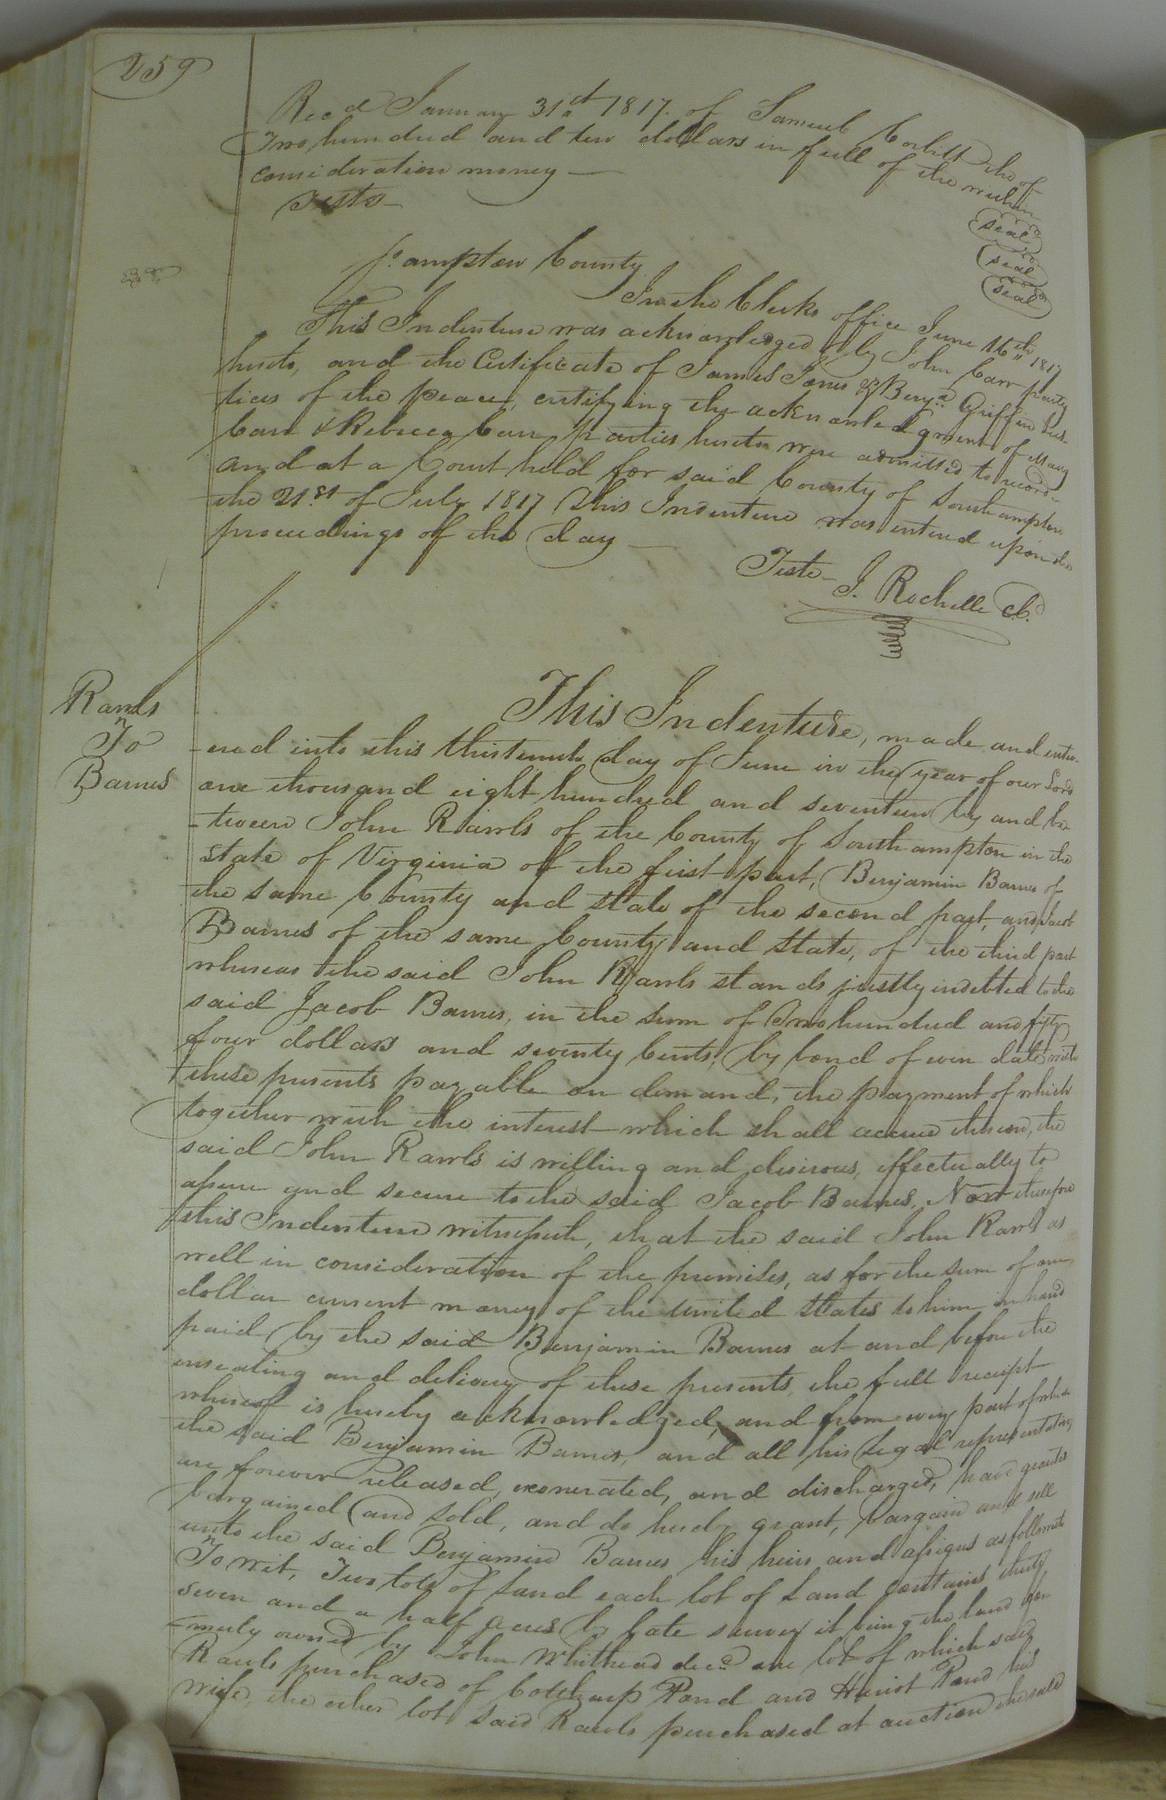 259
Recd January 31st 1817. of Samuel Corbitt the of
Two hundred and ten dollars in full of the within
consideration money —
Teste —
seal
seal
seal
So. ampton County
In the Clerks office June 16th 1817
This Indenture was acknowledged by John Carr party
hereto, and the Certificate of James Jones & Benja Griffin Jus
tices of the peace, certifying the acknowledgment of Mary
Carr & Rebecca Carr parties hereto were admitted to record
and at a Court held for said County of Southampton
the 21st of July 1817 This Indenture was entered upon the
proceedings of the day —
Teste — J. Rochelle C.
Rawls
To
Barnes
This Indenture, made and enter-
-ered into this thirteenth day of June in the year of our Lord
one thousand eight hundred and seventeen by and be
-tween John Rawls of the County of Southampton in the
state of Virginia of the first part, Benjamin Barnes of
the same County and state of the second part, and Jacob
Barnes of the same County and State, of the third part
whereas the said John Rawls stands justly indebted to the
said Jacob Barnes, in the sum of Two hundred and fifty
four dollars and seventy Cents, by bond of even date with
these presents payable on demand, the payment of which
together with the interest which shall accrue thereon, the
said John Rawls is willing and desirous, effectually to
assure and secure to the said Jacob Barnes, Now therefore
this Indenture witnesseth, that the said John Rawls as
well in consideration of the premises, as for the sum of one
dollar current money of the United States to him in hand
paid by the said Benjamin Barnes at and before the
ensealing and delivery of these presents, the full receipt
whereof is hereby acknowledged, and from every part of which
the said Benjamin Barnes, and all his legal representatives
are forever released, exonerated, and discharged, have granted
bargained and sold, and do hereby grant, bargain and sell
unto the said Benjamin Barnes his heirs and assigns as follows
To wit, Two lots of land each lot of land contains thirty
seven and a half acres by late survey it being the land for
-merly owned by John Whitehead decd one lot of which said
Rawls purchased of Rand and Hariot Rand his
wife, the other lot said Rawls purchased at auction the said